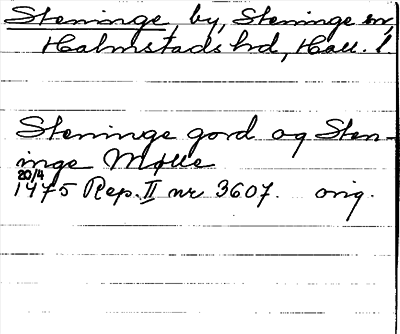 Steninge, by, Steninge sn,
Halmstads hrd, Hall. l
Steninge gord og Sten-
inge Mølle
20/4
1475 Rep. II nr 3607. orig.